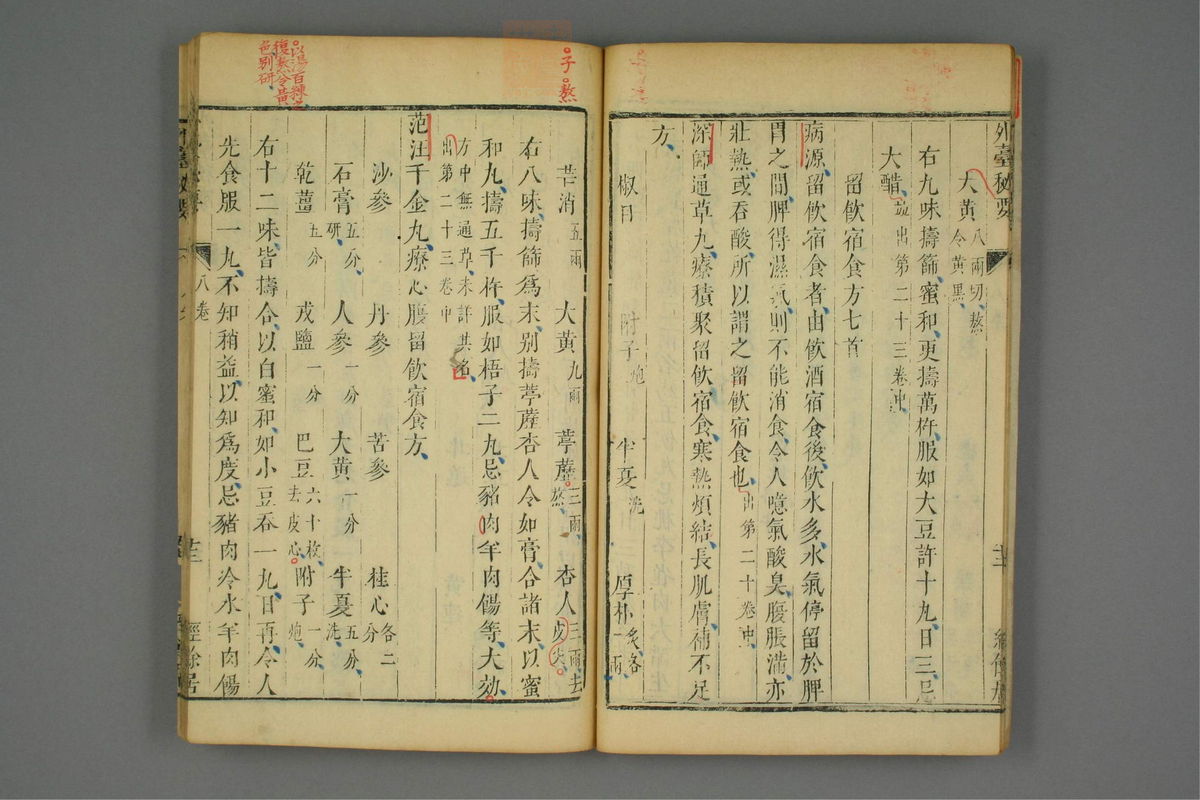 外臺祕要
大黃八兩切熬令黃黑
右九味擣篩蜜和更擣萬杵服如大豆許十丸日三忌
大醋並出第二十三卷中
留飲宿食方七首
病源留飲宿食者由飲酒宿食後飲水多水氣停留於脾
胃之間脾得濕氣則不能消食令人噫氣酸臭腹脹滿亦
壯熱或吞酸所以謂之留飲宿食也出第二十卷中
深師通草丸療積聚留飲宿食寒熱煩結長肌膚補不足
方
椒目 附子炮 半夏洗 厚朴炙各一兩
子熬
芒消五兩 大黃九兩 葶藶三兩熬 杏人三兩去皮尖
右八味擣篩為末別擣葶藶杏人令如膏合諸末以蜜
和丸擣五千杵服如梧子二丸忌豬肉羊肉餳等大効
方中無通草未詳其名出第二十三卷中
范汪千金丸療心腹留飲宿食方
沙參 丹參 苦參 桂心各二分
石膏五分研 人參一分 大黃一分 半夏五分洗
乾薑五分 戎鹽一分 巴豆六十枚去皮心 附子一分炮
以湯百
復熬令黃
色別研
右十二味皆擣合以白蜜和如小豆吞一丸日再令人
先食服一丸不知稍益以知為度忌豬肉冷水羊肉餳
八卷
經餘居